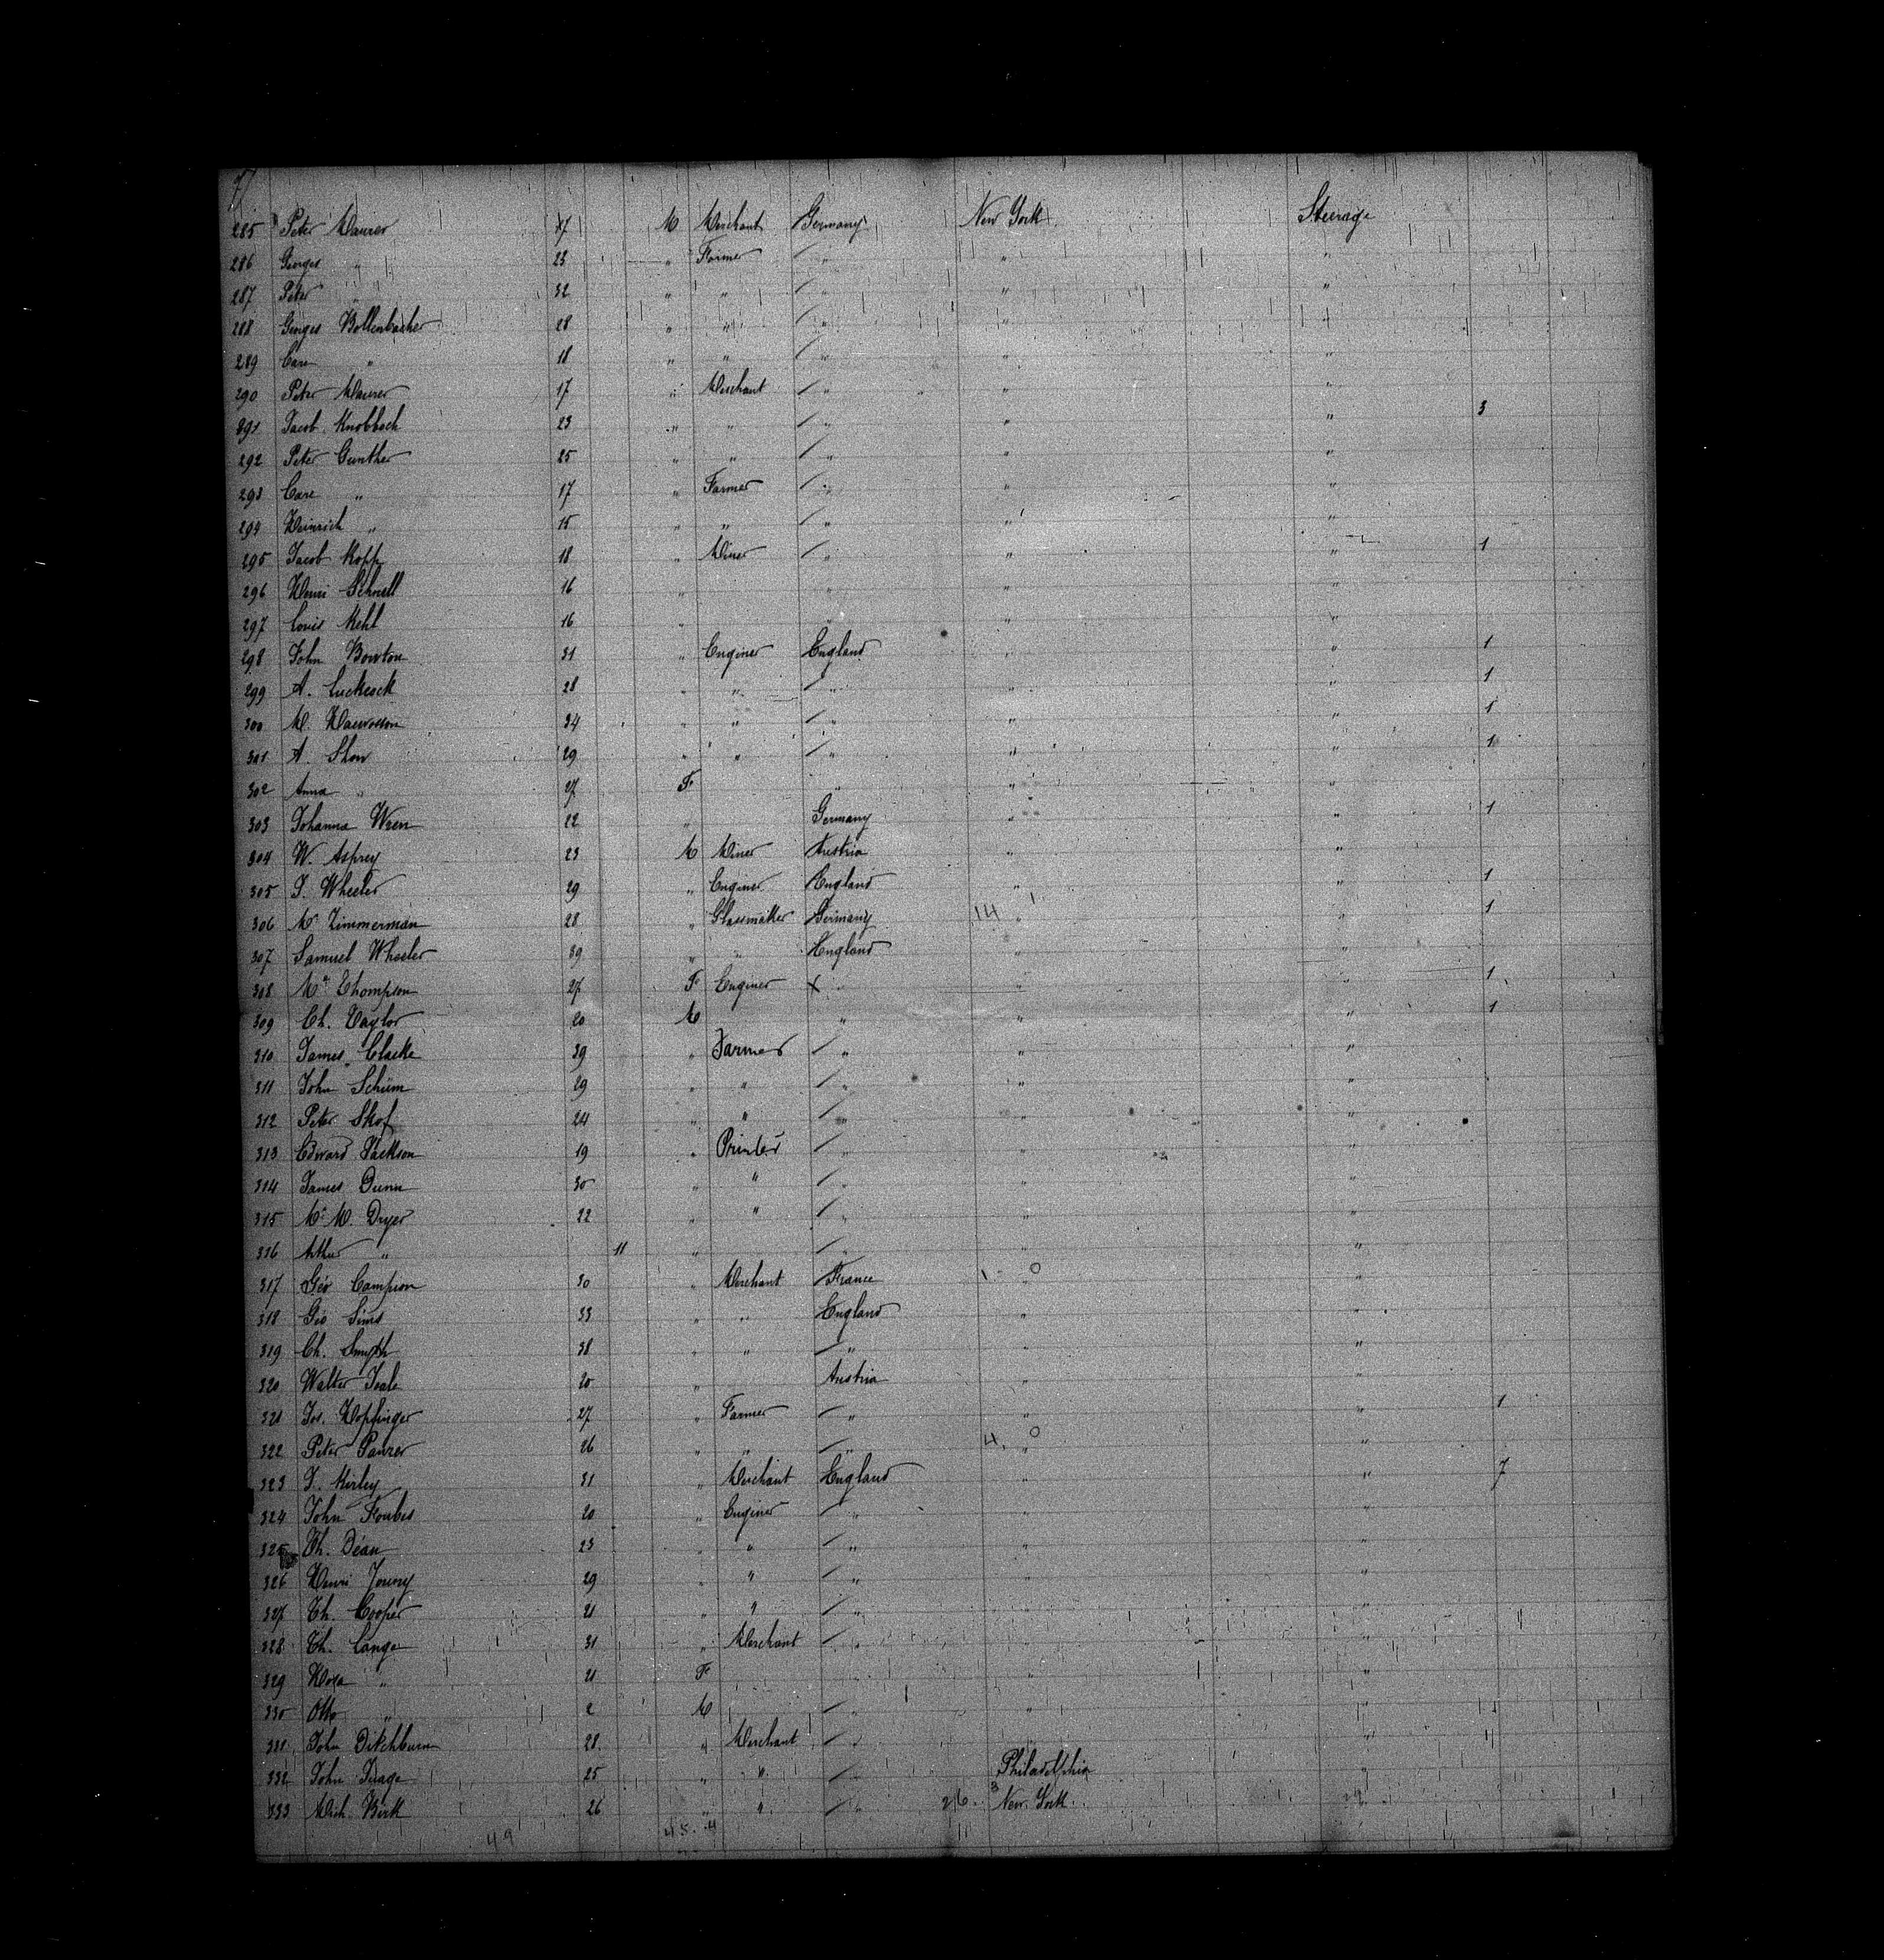 7
285 Peter Maurer 17 M Merchant Germany New York Steerage
286 Georges " 23 " Farmer " " "
287 Peter " 32 " " " " "
288 Georges Bollenbacher 28 " " " " "
289 Carl " 18 " " " " "
290 Peter Maurer 17 " Merchant " " "
291 Jacob Knobbach 23 " " " " " 3
292 Peter Gunther 25 " " " " "
293 Carl " 17 " Farmer " " "
294 Heinrich " 15 " " " " "
295 Jacob Kopp 18 " Miner " " " 1
296 Henri Schnell 16 " " " "
297 Louis Kehl 16 " " " "
298 John Bowton 31 " Enginer England " " 1
299 A. Luckcock 28 " " " " " 1
300 M. 34 " " " " " 1
301 A. Show 29 " " " " " 1
302 Anna " 27 F " " "
303 Johanna Wren 22 " Germany " " 1
304 W. Asprey 23 M Miner Austria " "
305 J. Wheeler 29 " Enginer England " " 1
306 Mr Zimmerman 28 " Glassmaker Germany 14 " " 1
307 Samuel Wheeler 39 " " England " "
308 Mrs Thompson 27 F Enginer x " " " 1
309 Ch. Taylor 20 M " " " 1
310 James Clacke 39 " Farmer " " "
311 John Schüm 29 " " " " "
312 Peter Skof 24 " " " " "
313 Edward Jackson 19 " Printer " " "
314 James Dunn 30 " " " " "
315 Mr M. Dryer 22 " " " " "
316 Arthur " 11 " " " "
317 Geo Campion 30 " Merchant France " "
318 Geo Sims 33 " " England " "
319 Ch. Smyth 38 " " " " "
320 Walter Teale 20 " Austria " "
321 Jos. Hopfinger 27 " Farmer " " " 1
322 Peter Paurer 26 " " " 4. 0 " "
323 J. Kerley 31 " Merchant England " " 7
324 John Foubes 20 " Enginer " " "
325 Th. Dean 23 " " " " "
326 Henri Jouny 29 " " " " "
327 Th. Cooper 21 " " " " "
328 Th. Lange 31 " Merchant " " "
329 " 21 F " "
330 Otto " 2 M " " "
331 John Ditchburn 28 " Merchant " " "
332 John 25 " " " Philadelphia "
333 Mich. Birk 26 " " " 26. 3 New York. "
49 45. 4